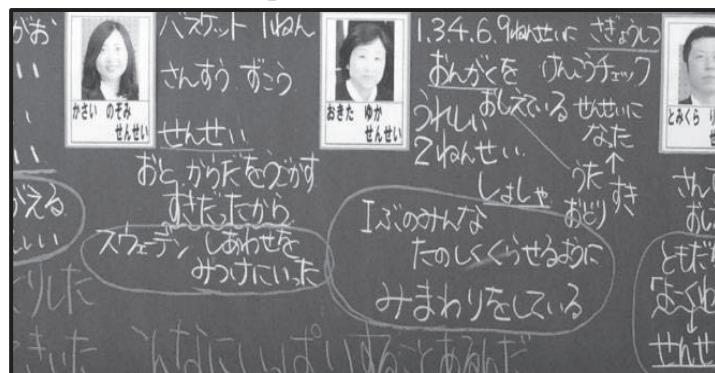 がお
かさい のぞみ
せんせい
バスケット 1ねん
さんすう ずこう
せんせい
おと、からだをうごかす
すきだったから
スウェーデン しあわせを
みつけにいった
おきた ゆか
せんせい
1.3.4.6.9ねんせいに さぎょうしつ
おんがくを けんこうチェック
おしえている せんせいに
なった
うれしい
2ねんせい
しょしゃ
うた
おどり
すき
Iぶのみんな
たのしくくらせるように
みまわりをしている
とみくら り
せ
さんす
おし
ともだ
よこくわ
せんせ
がえる
しい
くりした
きいた こんなにいっぱいすることあるんだ